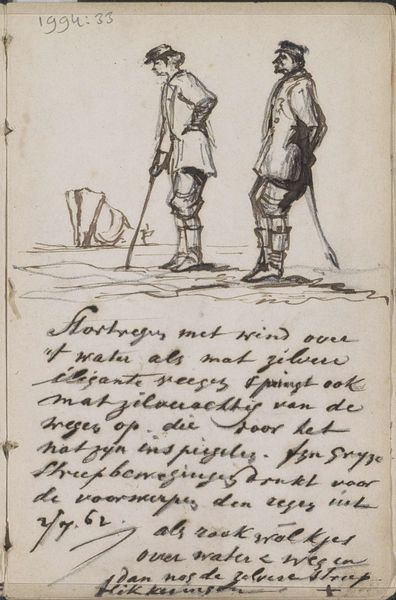 1994:33
Stortregen met wind over
't water als mat zilvere
eligante veegen springt ook
mat zilverachtig van de
wegen op. die door het
nat zyn inspiegelen. fyn gryze
Streepbewegingen drukt voor
de voorwerpen den regen uit
2/7. 62.
als rook wolkjes
over water & wegen
dan nog de zilvere streep
flikkeringen